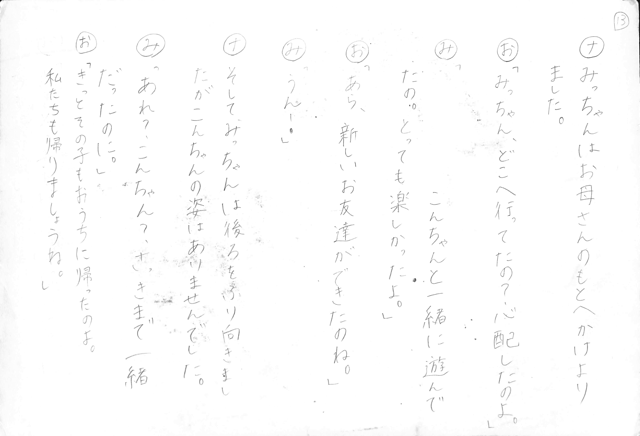 13
ナ みっちゃんはお母さんのもとへかけより
ました。
お「みっちゃん、どこへ行ってたの?心配したのよ。」
み「 こんちゃんと一緒に遊んで
たの。とっても楽しかったよ。」
お「あら、新しいお友達ができたのね。」
み「うんー。」
ナ そして、みっちゃんは後ろをふり向きまし
たがこんちゃんの姿はありませんでした。
み「あれ?こんちゃん?、さっきまで一緒
だったのに。」
お「きっとその子もおうちに帰ったのよ。
私たちも帰りましょうね。」